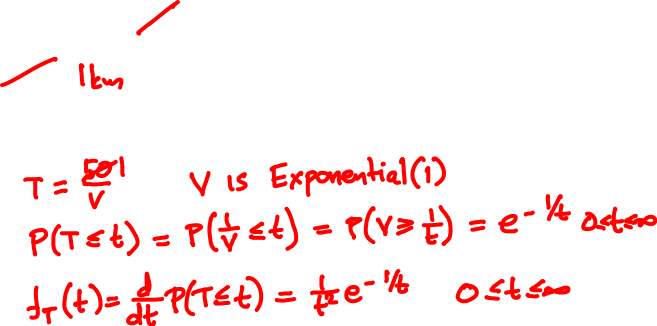 1km
T = 1/V V is Exponential(1)
P(T ≤ t) = P(1/V ≤ t) = P(V ≥ 1/t) = e^{-1/t} 0≤t≤∞
f_T(t) = d/dt P(T≤t) = 1/t² e^{-1/t} 0≤t≤∞